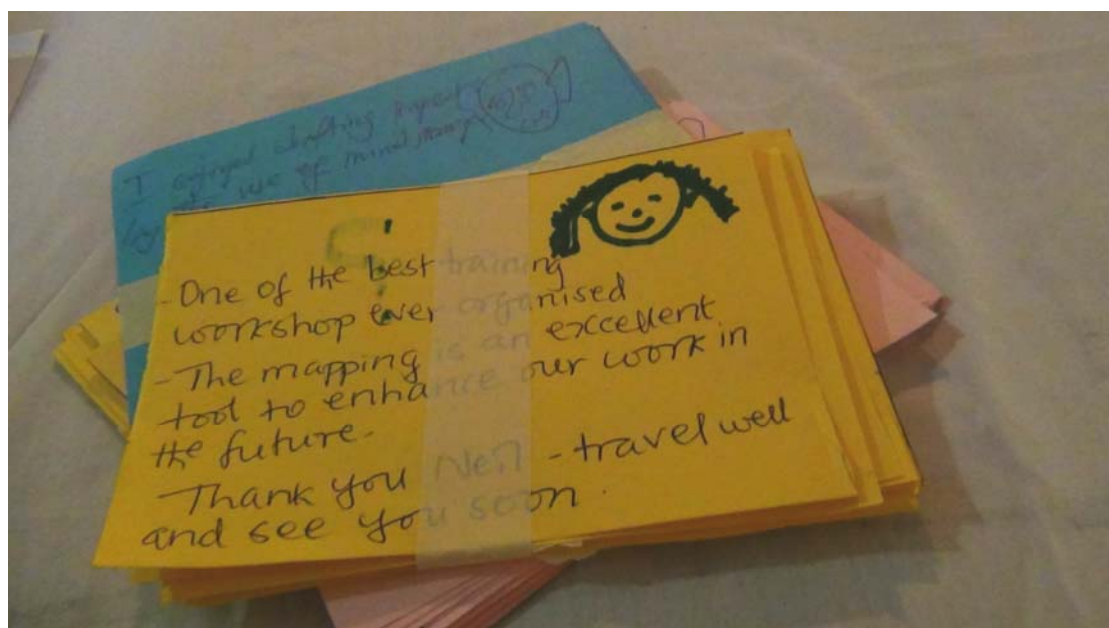 I enjoyed drafting report
by the use of mind map
- One of the best training
workshop ever organised
- The mapping is an excellent
tool to enhance our work in
the future.
Thank you Neil - travel well
and see you soon.